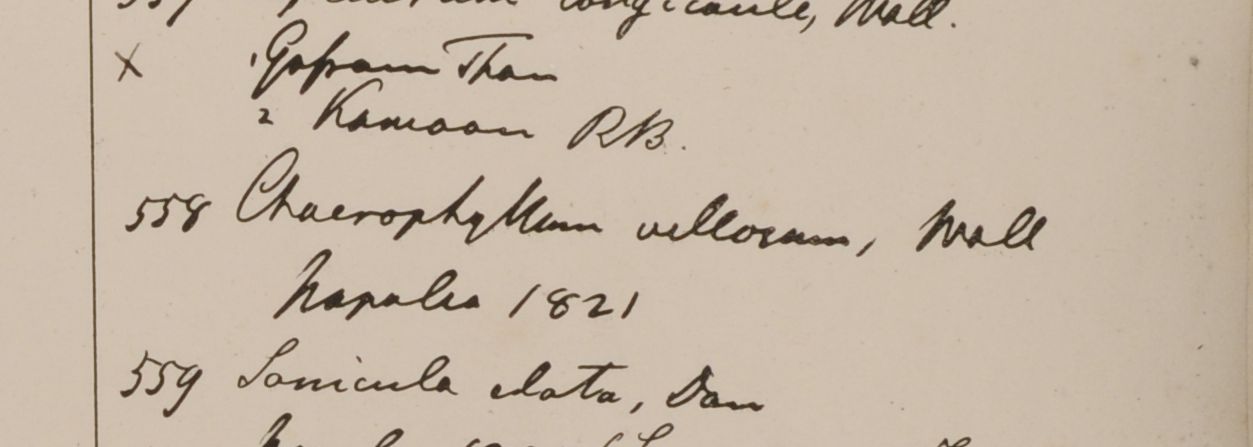 longicaule, Wall.
x 1 Gossam Than
2 Kamaon RB.
558 Chaerophyllum villosum, Wall
Napalia 1821
559 Sanicula elata, Don